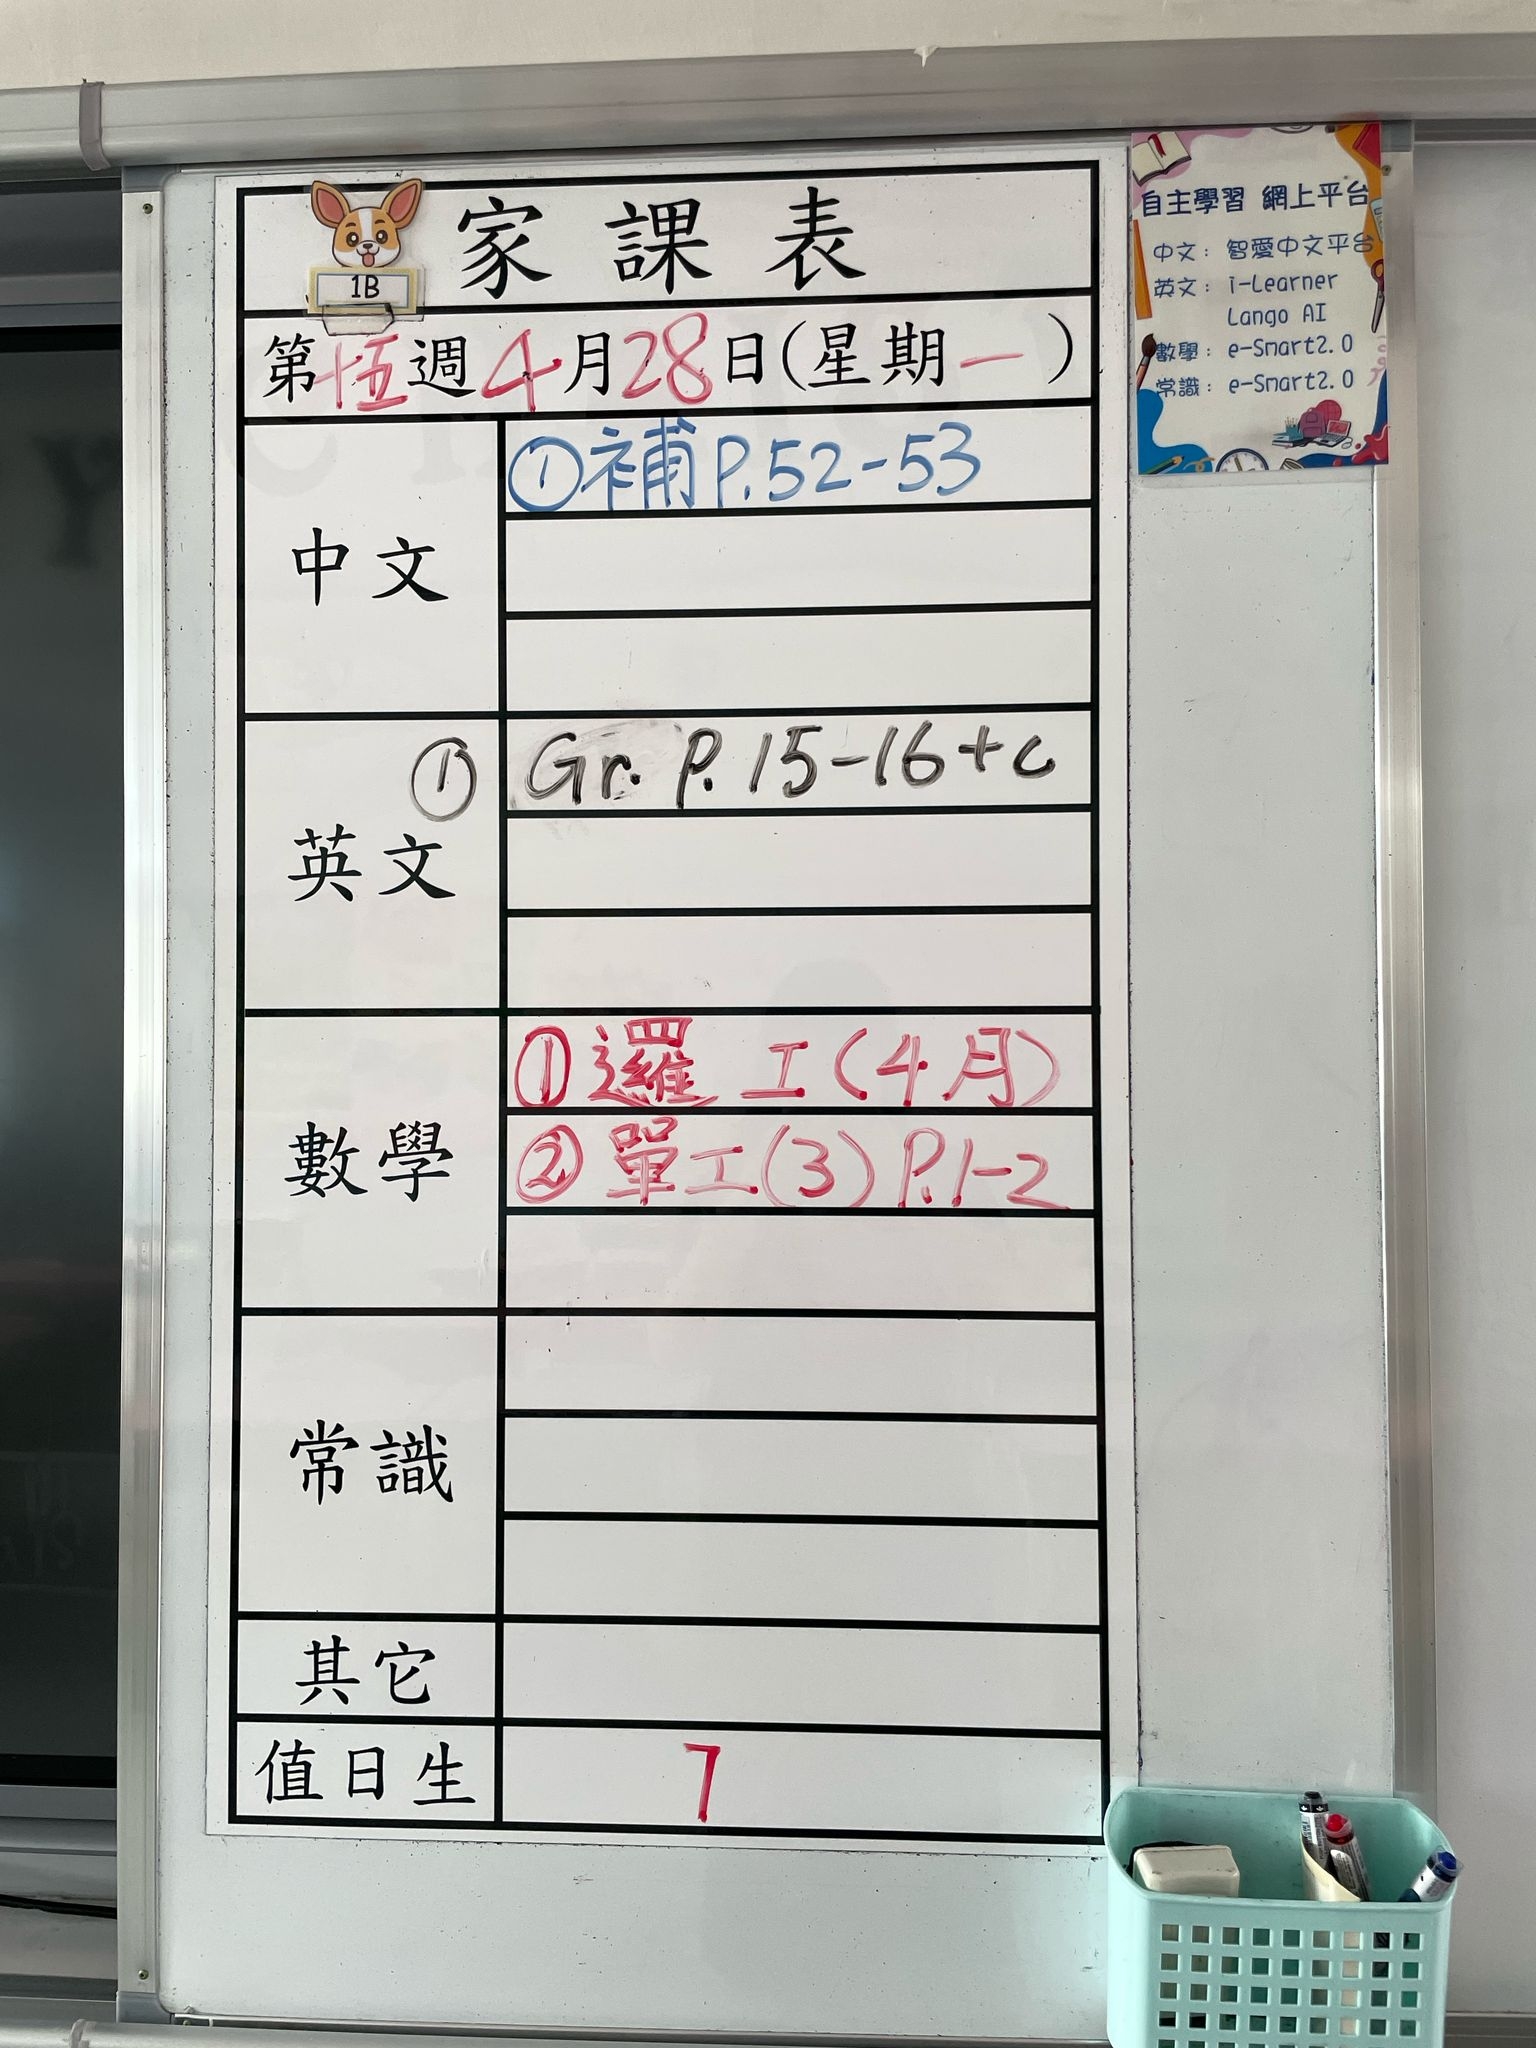 家課表
1B
第十五週4月28日(星期一)
中文
①補P.52-53
英文
① Gr. P.15-16+c
數學
①邏工(4月)
②單工(3)P.1-2
常識
其它
值日生
7
自主學習 網上平台
中文: 智愛中文平台
英文: i-Learner
Lango AI
數學: e-Smart2.0
常識: e-Smart2.0